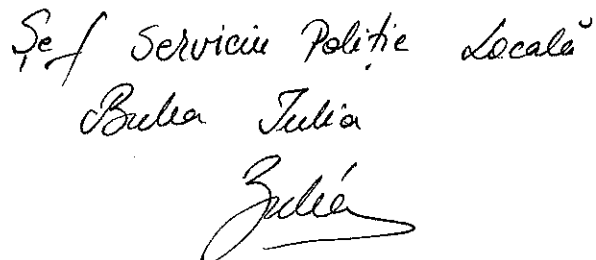 Șef Serviciu Poliție Locală
Bulea Iulia